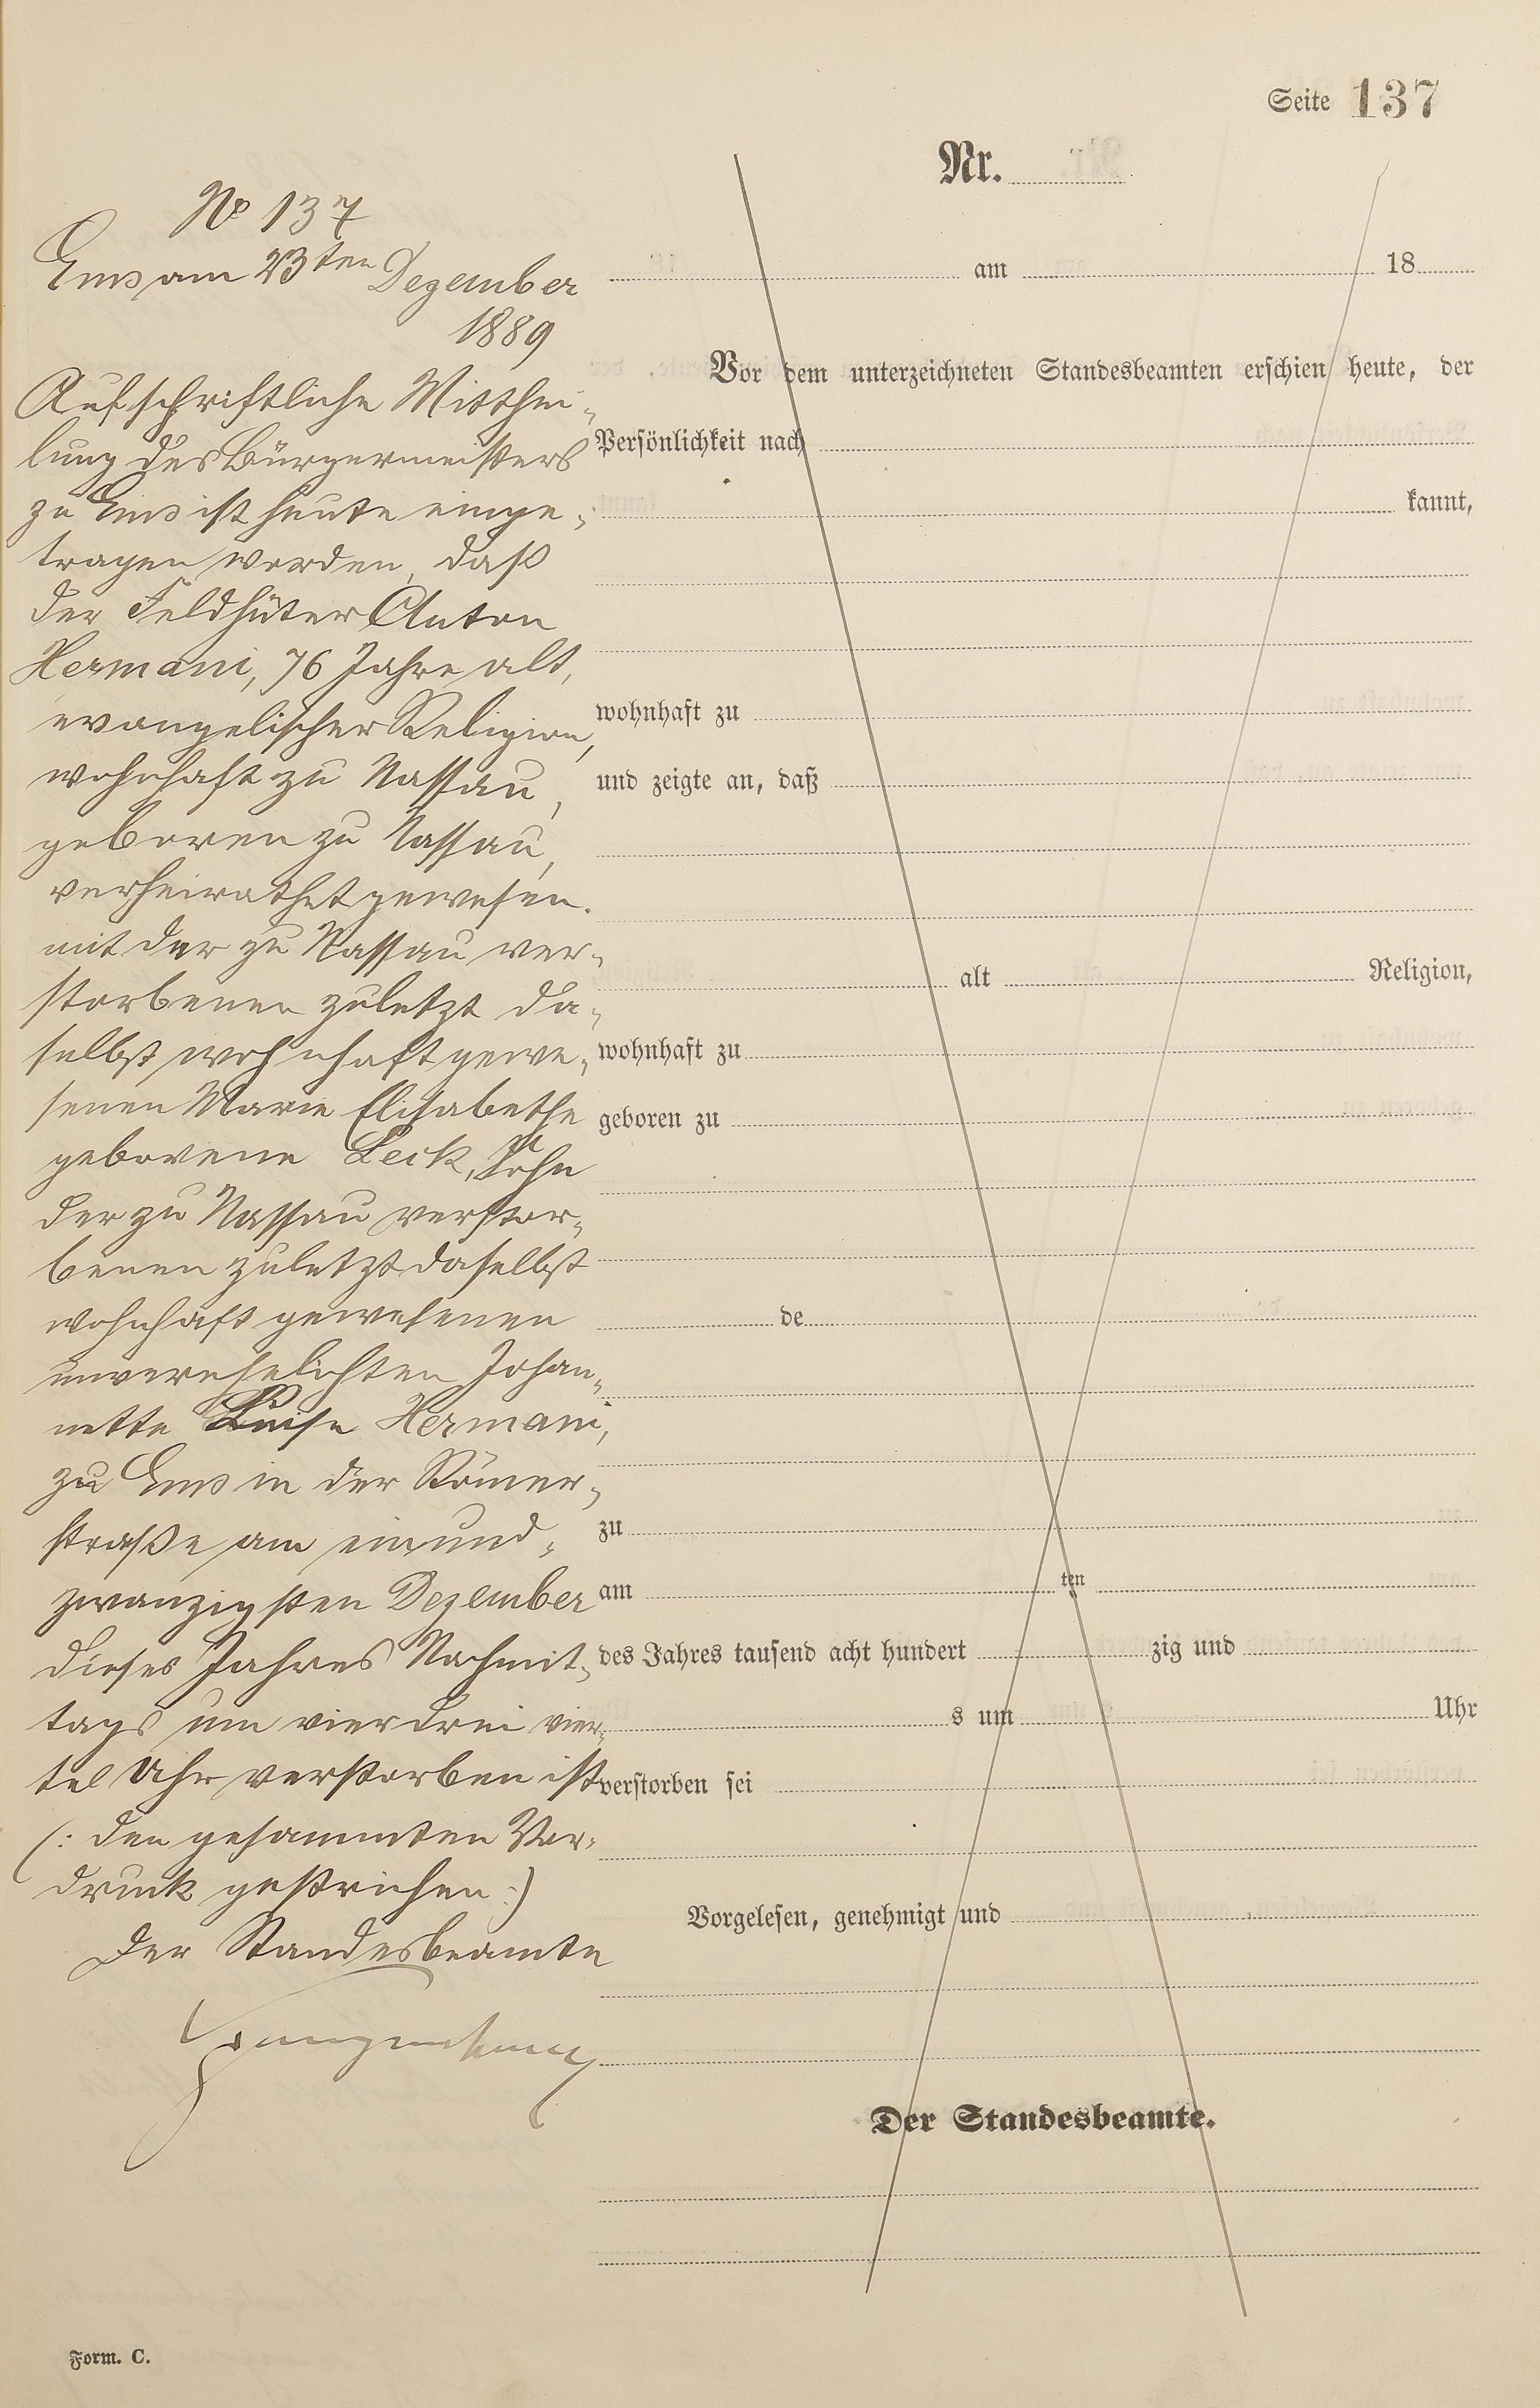 Seite 137
Nr.
No 137
Ems am 23ten Dezember
1889
Auf schriftliche Mitthei-
lung des Bürgermeisters
zu Ems ist heute einge-
tragen worden, daß
der Feldhüter Anton
Hermani, 76 Jahre alt,
evangelischer Religion,
wohnhaft zu Nassau,
geboren zu Nassau,
verheirathet gewesen
mit der zu Nassau ver-
storbenen zuletzt da-
selbst wohnhaft gewe-
senen Marie Elisabethe
geborene Leik, Sohn
der zu Nassau verstor-
benen zuletzt daselbst
wohnhaft gewesenen
unverehelichten Johan-
nette Luise Hermani,
zu Ems in der Römer-
straße am einund-
zwanzigsten Dezember
dieses Jahres Nachmit-
tags um vier drei vier-
tel Uhr verstorben ist
(: den gesammten Vor-
druck gestrichen :)
Der Standesbeamte
am 18
Vor dem unterzeichneten Standesbeamten erschien heute, der
Persönlichkeit nach
kannt,
wohnhaft zu
und zeigte an, daß
alt Religion,
wohnhaft zu
geboren zu
de
zu
am ten
des Jahres tausend acht hundert zig und
s um Uhr
verstorben sei
Vorgelesen, genehmigt und
Der Standesbeamte.
Form. C.